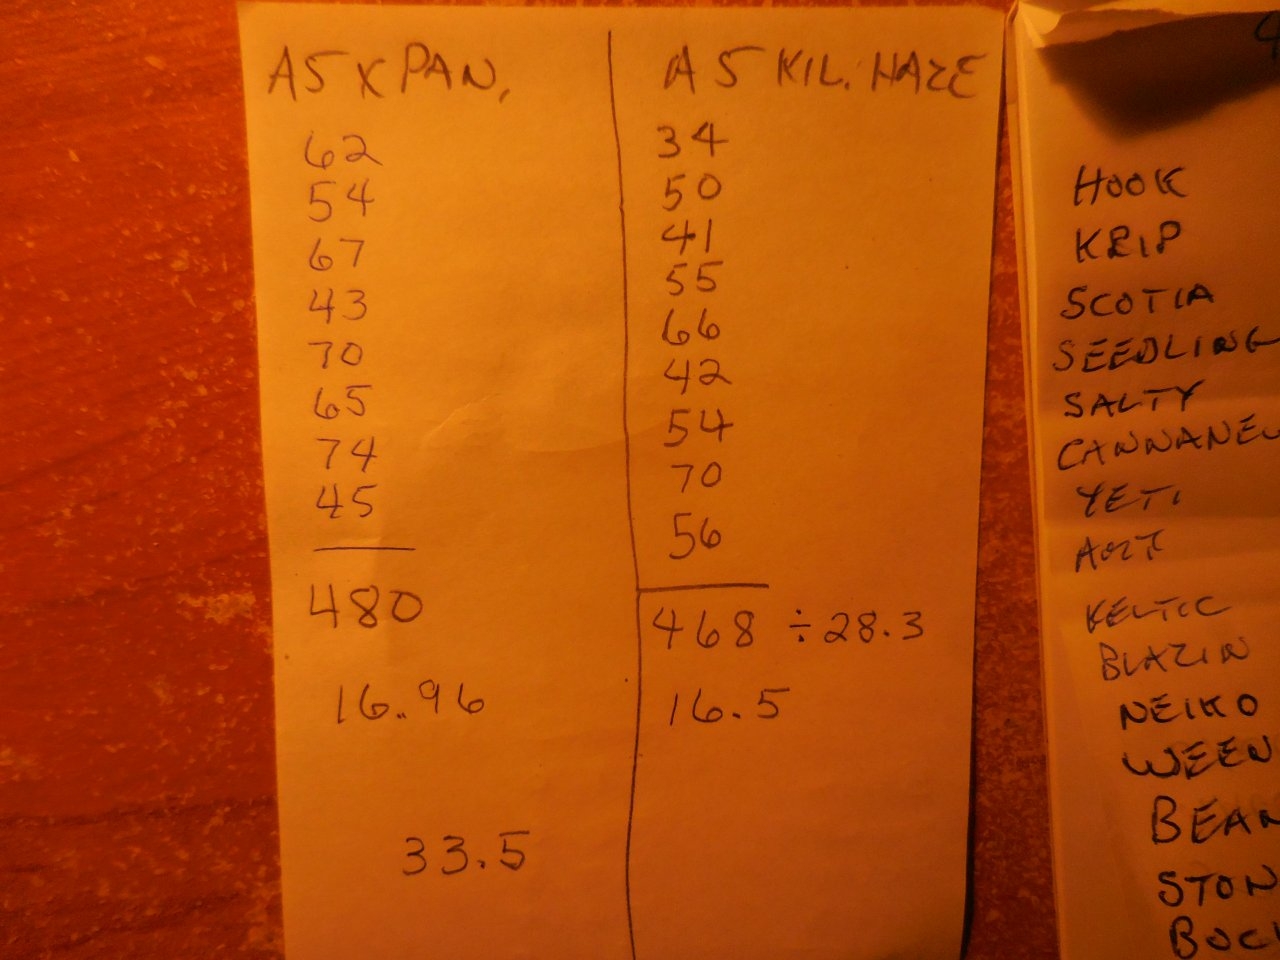 A5 X PAN.
62
54
67
43
70
65
74
45
480
16.96
33.5
A5 KIL. HAZE
34
50
41
55
66
42
54
70
56
468 ÷ 28.3
16.5
HOOK
KRIP
SCOTIA
SEEDLING
SALTY
YETI
KELTIC
BLAZIN
NEIKO
WEEN
BEAN
STON